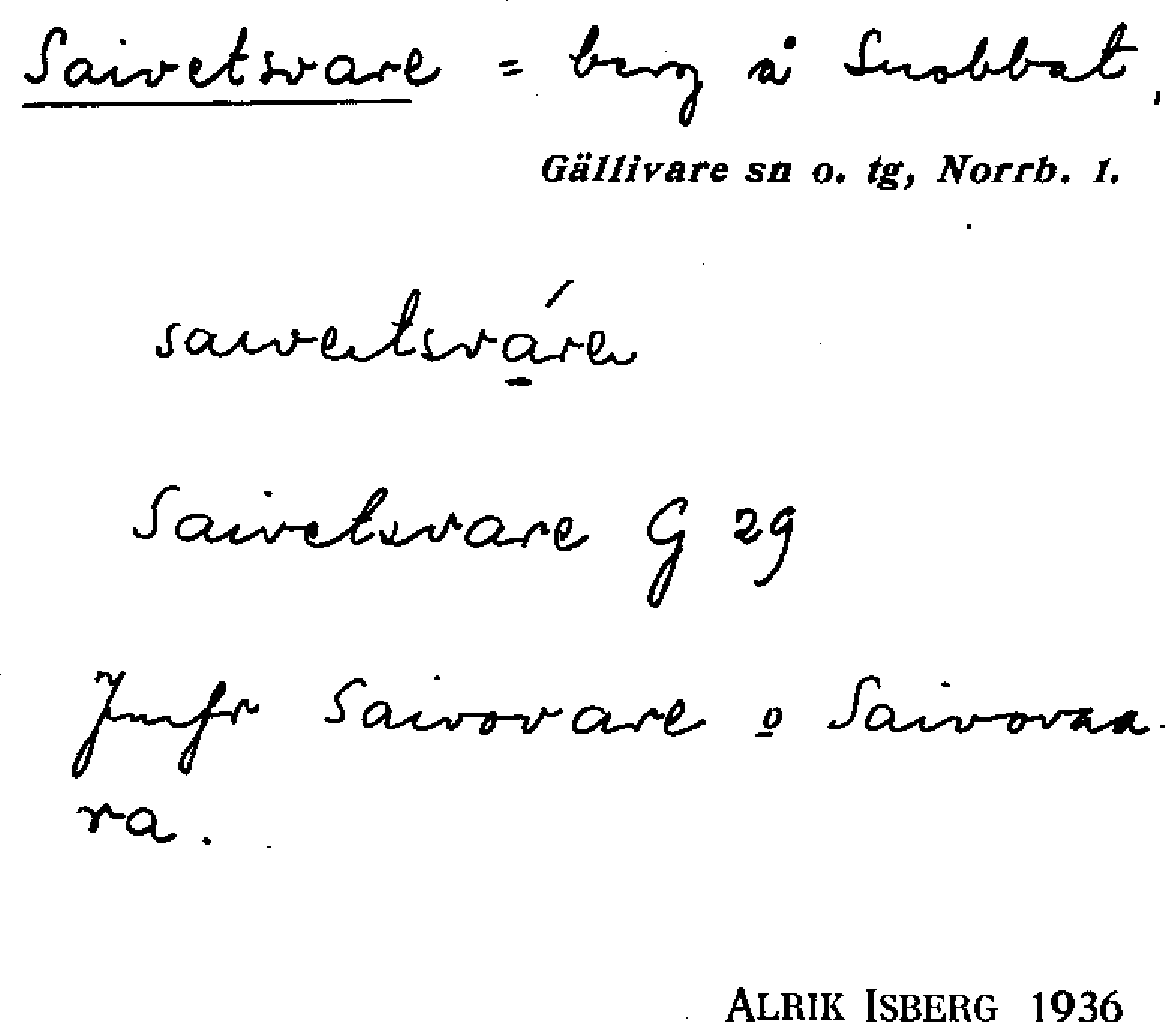 Saivetsvare = berg å Snobbat,
Gällivare sn o. tg, Norrb. 1.
saivetsváre
Saivetsvare G 29
Jmfr Saivovare o Saivovaa-
ra.
ALRIK ISBERG 1936